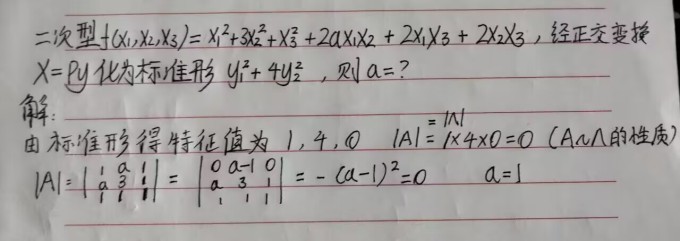 二次型f(x₁,x₂,x₃)= x₁²+3x₂²+x₃²+2ax₁x₂+2x₁x₃+2x₂x₃,经正交变换
X=Py化为标准形 y₁²+4y₂²,则a=?
解:
由标准形得特征值为1,4,0 |A|=1×4×0=0 (A∽Λ的性质)
=|Λ|
|A|=|1 a 1; a 3 1; 1 1 1|=|0 a-1 0; a 3 1; 1 1 1|=-(a-1)²=0 a=1